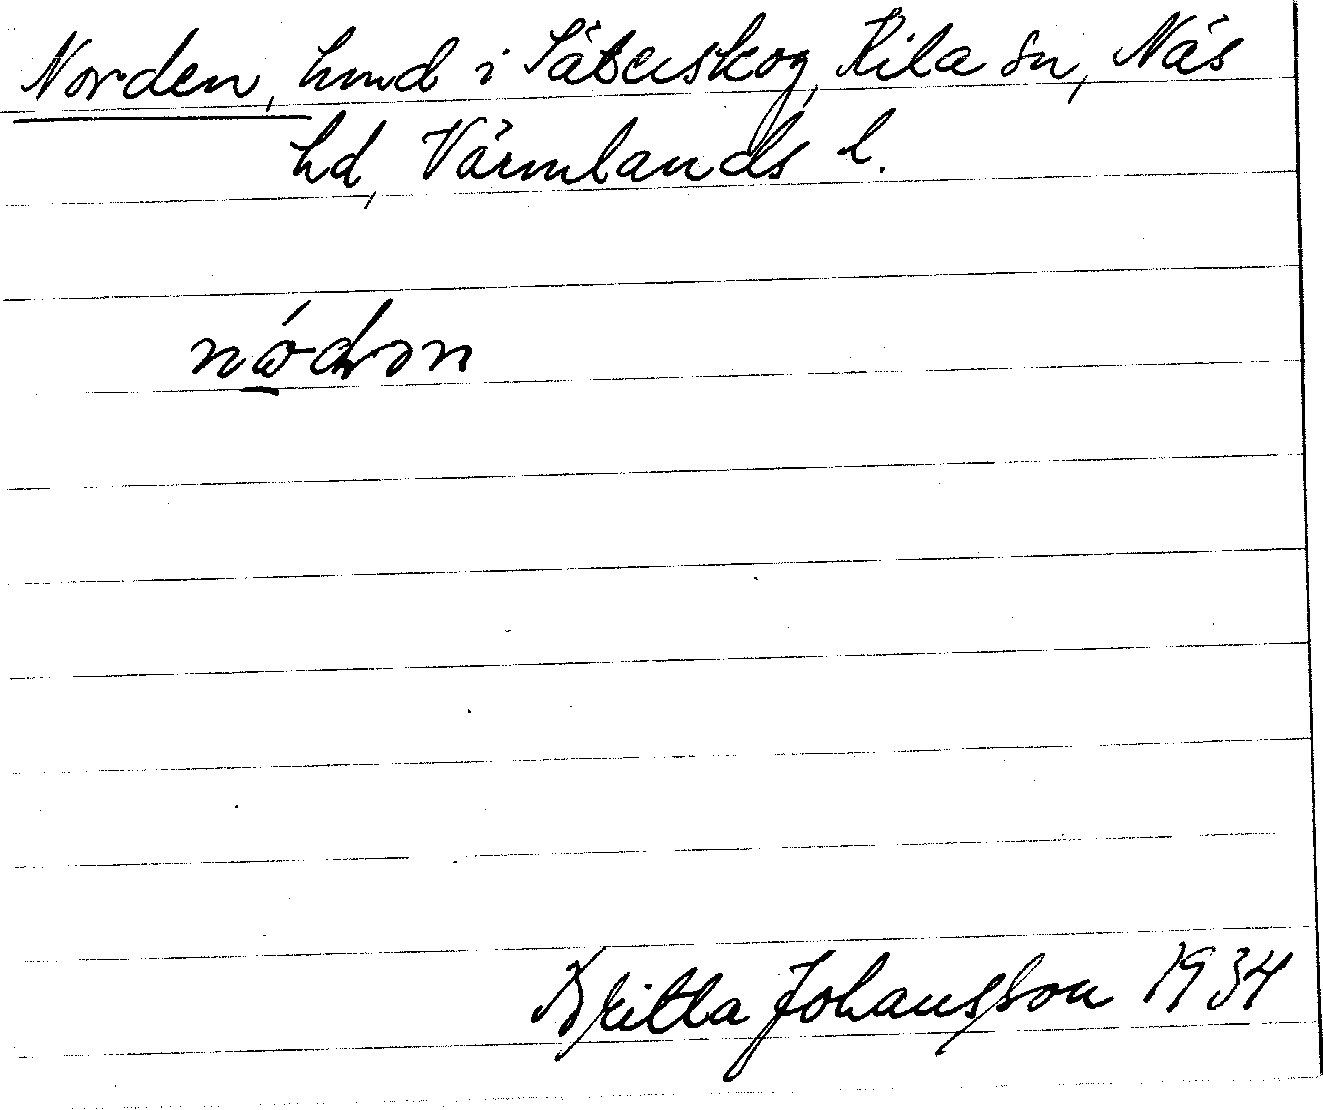 Norden, hund i Säterskog, Kila sn, Näs
hd, Värmlands l.
Britta Johansson 1934